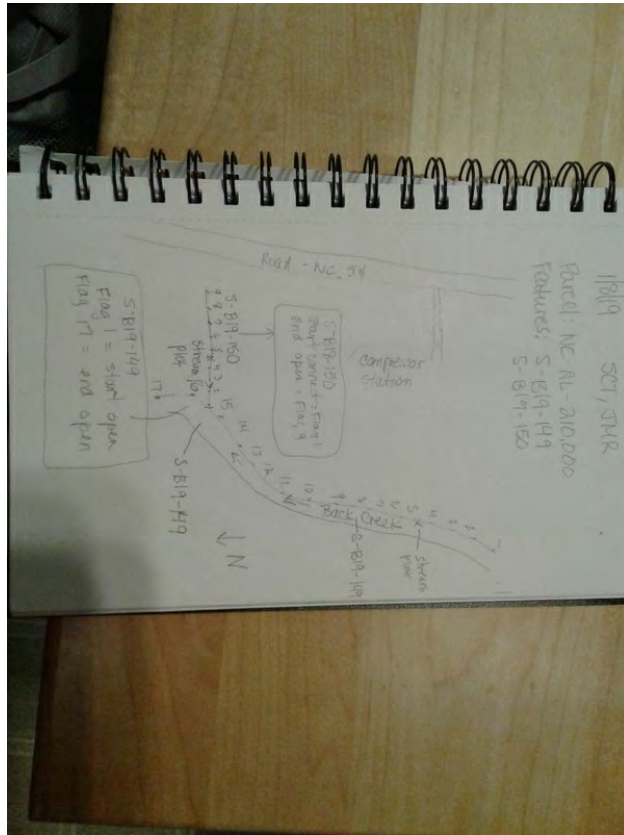 1/8/19 SCT, JMR
Parcel: NC AL-210.000
Features: S-B19-149
S-B19-150
Road - NC. 54
Compressor
station
S-B19-150
start connect = Flag 1
end open = Flag 9
S-B19-150
9 8 7 6 5 4 3 2 1
stream
plot
1
2
3
4
5
stream
plot
6
7
8
9
Back Creek
S-B19-149
10
11
12
13
14
15
17
N
S-B19-149
S-B19-149
Flag 1 = start open
Flag 17 = end open